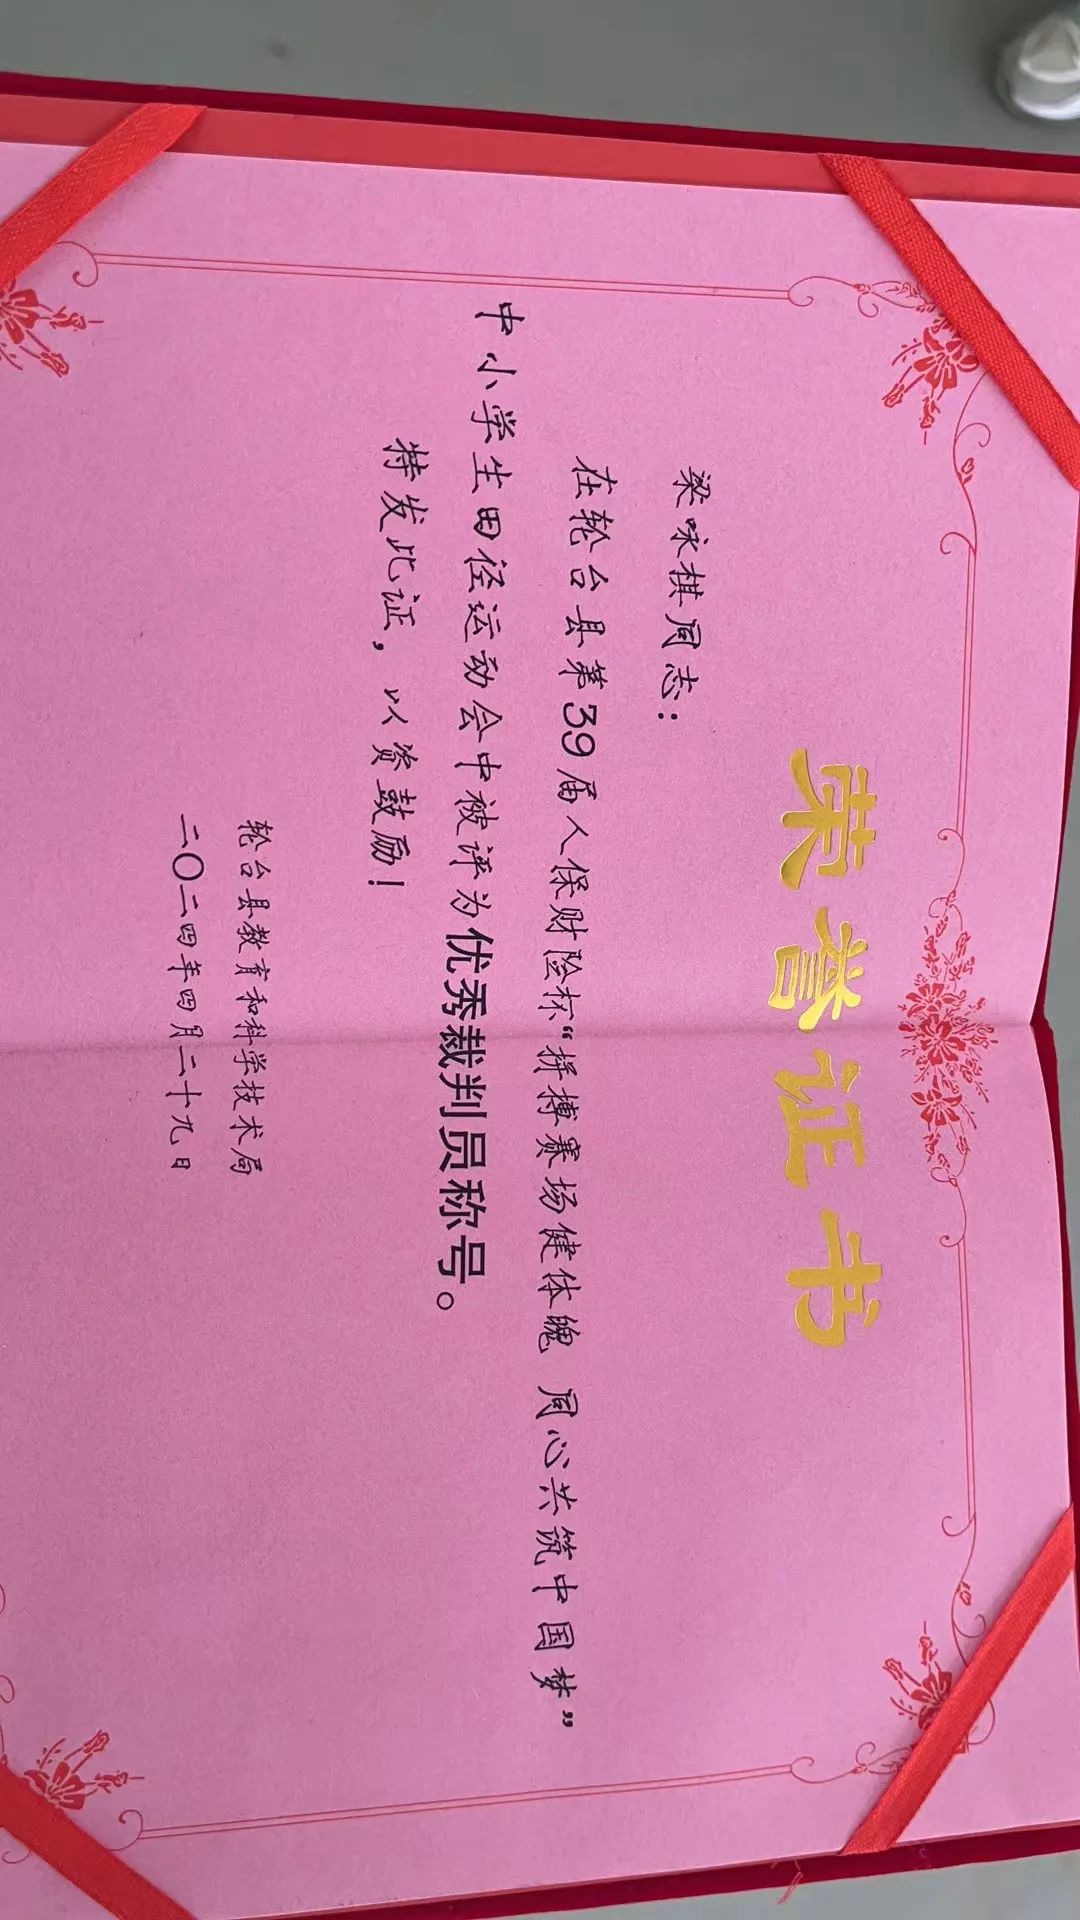 荣誉证书
梁咏棋同志：
在轮台县第39届人保财险杯“拼搏赛场健体魄 同心共筑中国梦”
中小学生田径运动会中被评为优秀裁判员称号。
特发此证，以资鼓励！
轮台县教育和科学技术局
二〇二四年四月二十九日